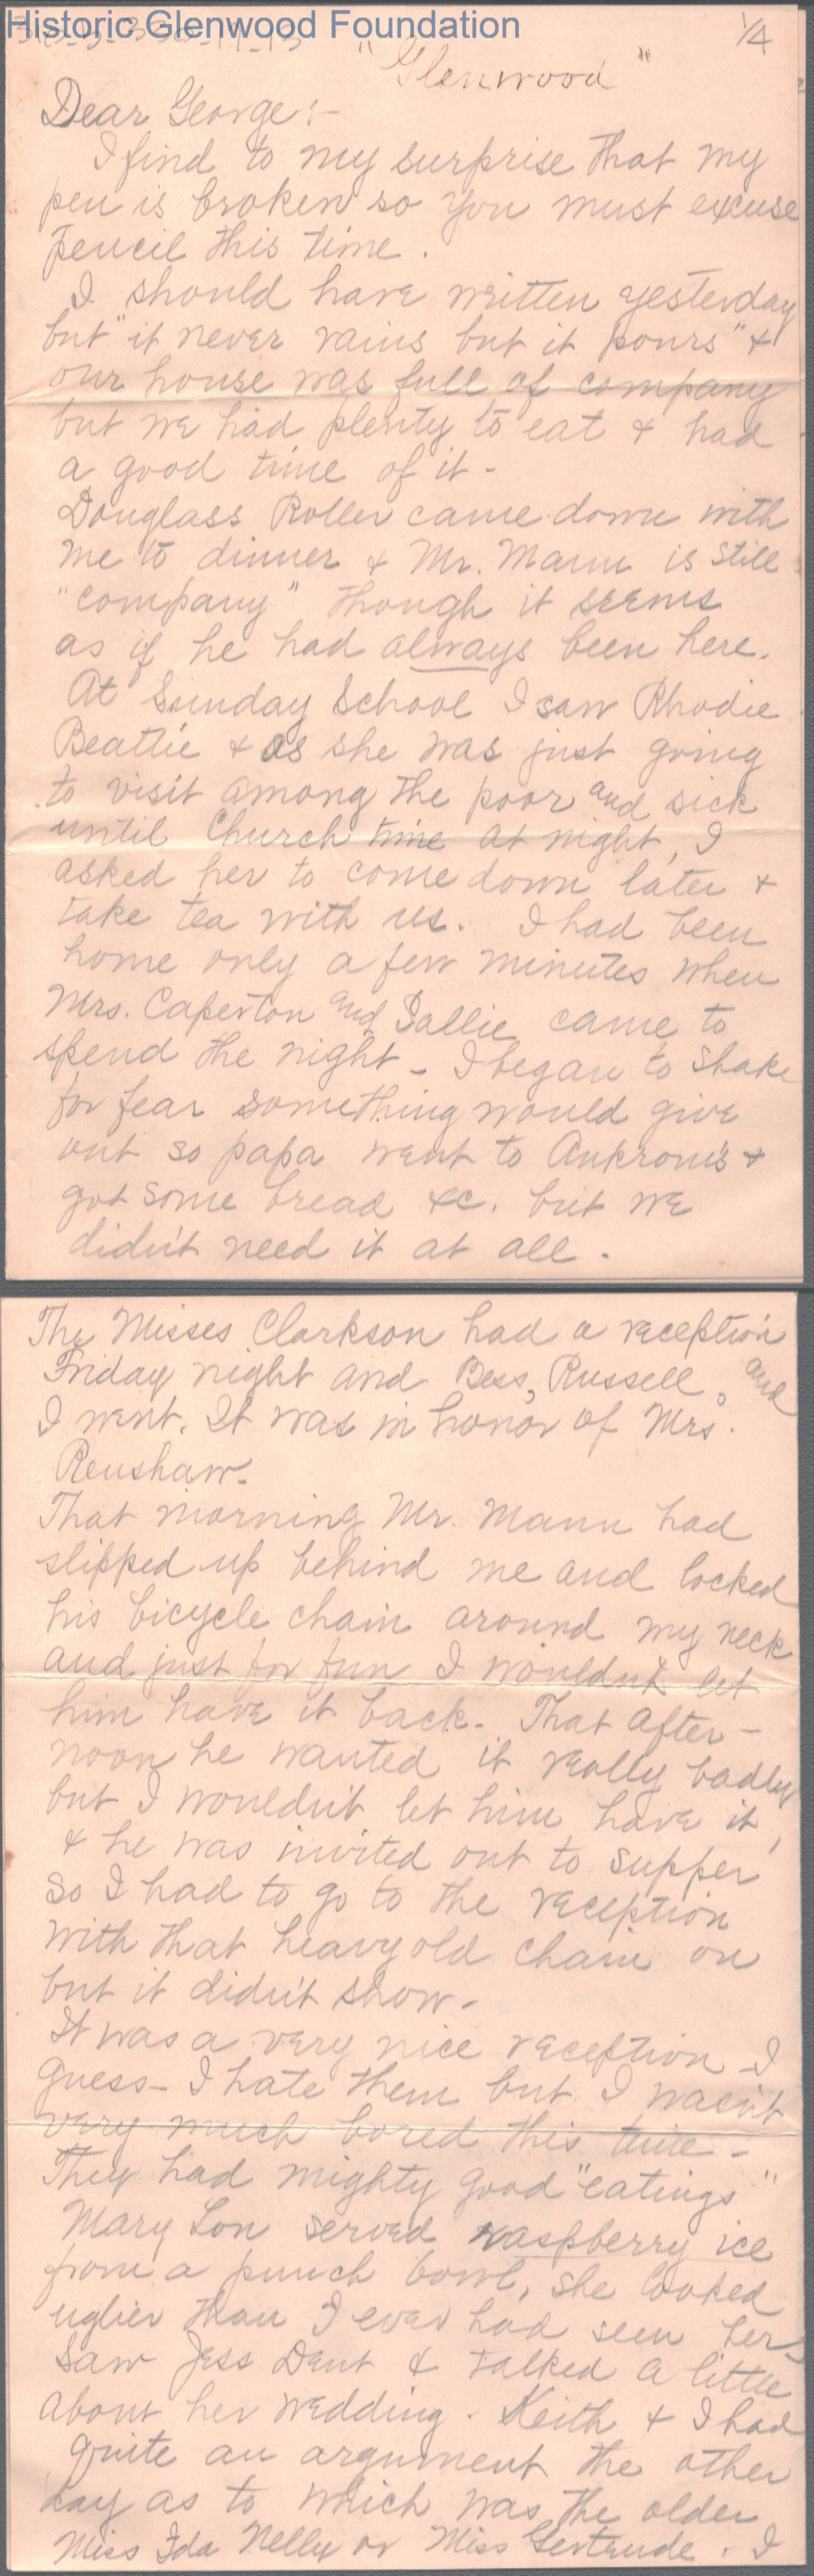 Historic Glenwood Foundation
1/4
"Glenwood"
Dear George:-
I find to my surprise that my
pen is broken so you must excuse
pencil this time.
I should have written yesterday
but "it never rains but it pours" &
our house was full of company
but we had plenty to eat & had
a good time of it-
Douglass Roller came down with
me to dinner & Mr. Mann is still
"company" though it seems
as if he had always been here.
At Sunday School I saw Rhodie
Beattie & as she was just going
to visit among the poor and sick
until Church time at night, I
asked her to come down later &
take tea with us. I had been
home only a few minutes when
Mrs. Caperton and Sallie came to
spend the night - I began to shake
for fear something would give
out so papa went to Ankrom's &
got some bread &c. but we
didn't need it at all.
The Misses Clarkson had a reception
Friday night and Bess, Russell, and
I went. It was in honor of Mrs.
Renshaw.
That morning Mr. Mann had
slipped up behind me and locked
his bicycle chain around my neck
and just for fun I wouldn't let
him have it back. That after-
noon he wanted it really badly
but I wouldn't let him have it,
& he was invited out to supper
so I had to go to the reception
with that heavy old chain on
but it didn't show.
It was a very nice reception I
guess - I hate them but I wasn't
very much bored this time -
They had mighty good "eatings"
Mary Lou served raspberry ice
from a punch bowl, she looked
uglier than I ever had seen her -
Saw Jess Dent & talked a little
about her wedding. Keith & I had
quite an argument the other
day as to which was the older
Miss Ida Nelly or Miss Gertrude. I